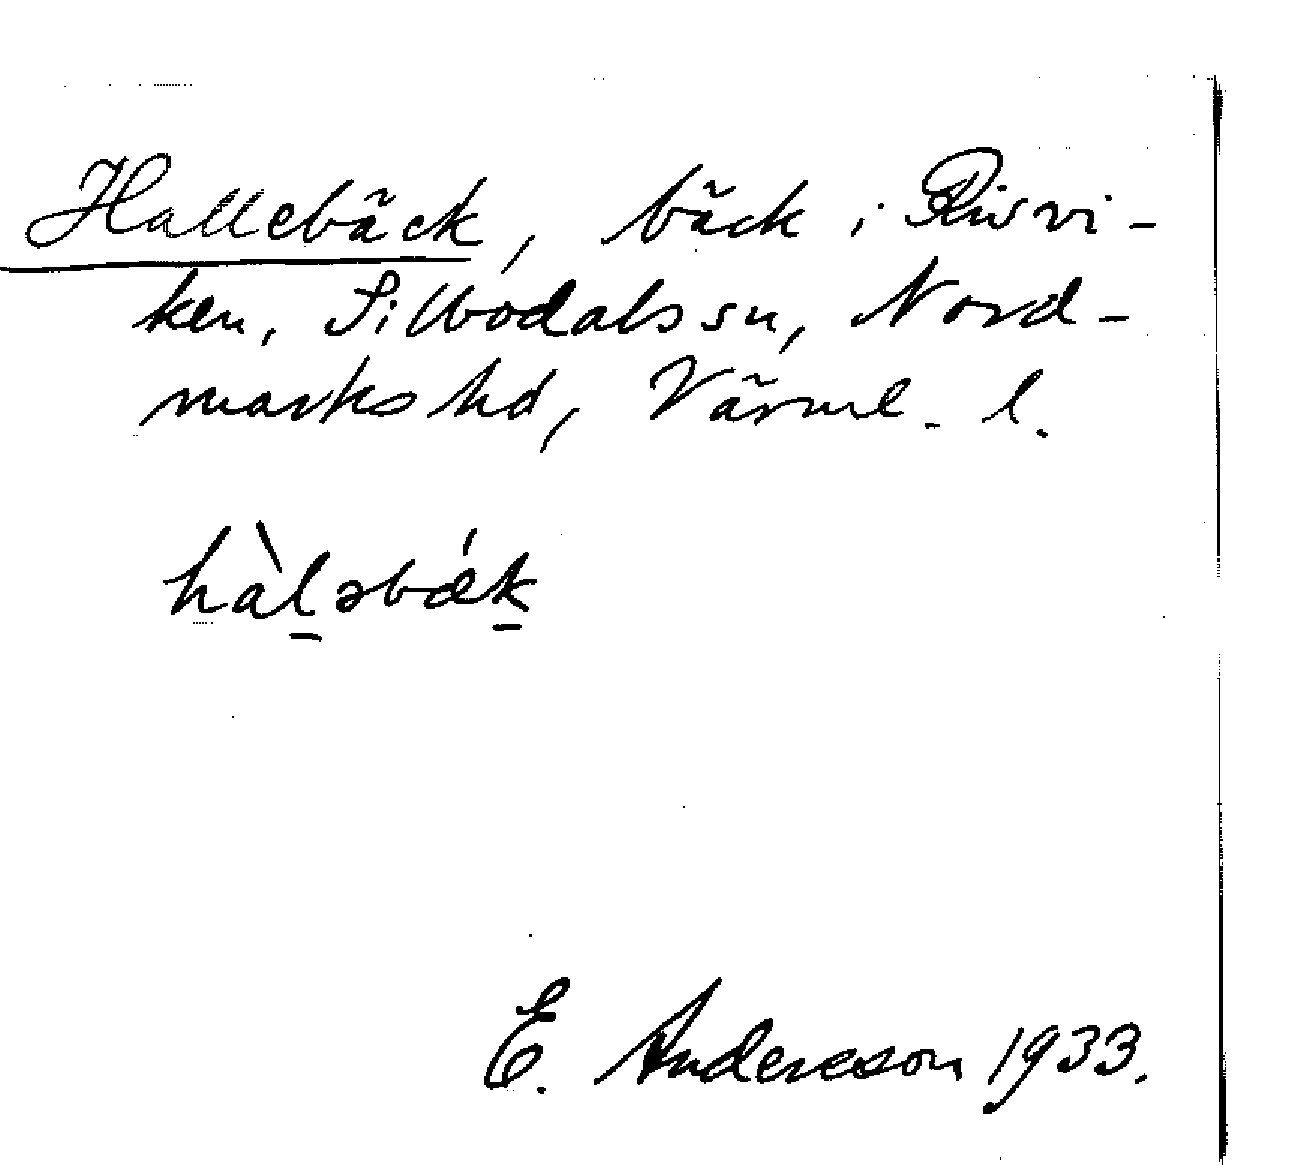 Hallebäck, bäck i Risvi-
ken, Sillbodals sn, Nord-
marks hd, Värml. l.
hàl̠əbǽk̠
E. Andersson 1933.